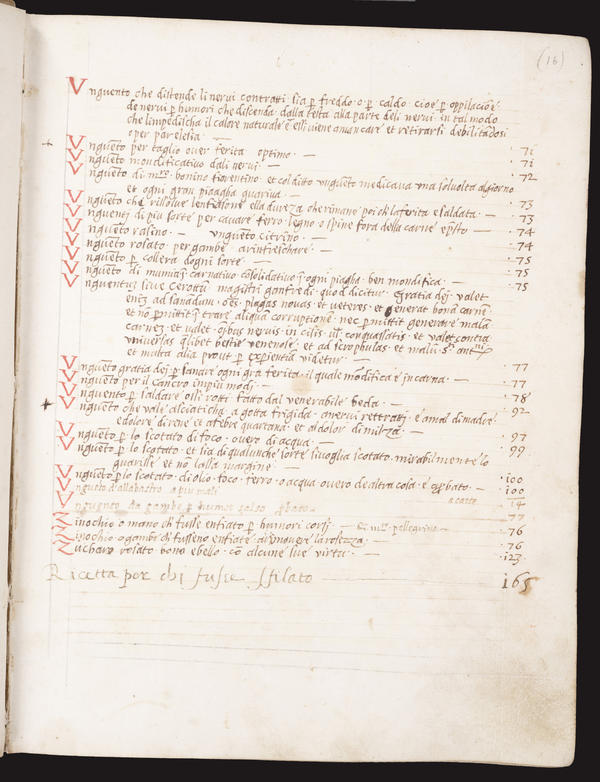 (16)
Vnguento che distende li nerui contratti. sia p freddo. o p. caldo. cioe p oppilacioe
de nerui p humori che discenda. dalla testa alla parte deli nerui. in tal modo
che limpedischa il calore naturale e essi viene a mancare et retirarsi debilitadosi
o per parlesia. —
Vngueto per taglio ouer ferita optimo. — 71
Vngueto mondificatiuo dali nerui. — 71
Vngueto di m.ro bonino fiorentino. et col ditto vngueto medicaua una sol uolta al giorno 72
et ogni gran piaagha guariua —
Vngueto che rissolue lenfiasone ella dureza che rimane poi ch la ferita e saldata. — 73
Vnguenti di piu sorte per cauare ferro. legno. o spine fora della carne epsto — 73
Vngueto rasino. — vngueto citrino. — 74
Vngueto rosato per gambe. a rinfreschare. — 74
Vngueto p collera dogni sorte. — 75
Vngueto di mumia; carnatiuo cosolidatiuo j ogni piagha. ben mondifica. — 75
Vnguentus siue cerottu magistri gonfredi. quod dicitur. Gratia dei. valet 75
eni; ad sanandum. oes piagas nouas. et veteres. et generat bona carne.
et no pmittit p trare aliqua corruptione. nec pmittit generare mala
carne;. et ualet. oibus neruis. in cisis. ul conquassatis. et valet contra
vniuersas qlibet bestie venenose. et ad scrophulas. et malu. s.ti ant.nij
et multa alia prout p expientia videtur. —
Vngueto gratia dei p sanare ogni gra ferita. il quale modifica e jncarna. — 77
Vngueto per il cancro impiu modi. — 77
Vnguento p saldare ossi rotti. fatto dal venerabile beda. — 78
Vngueto che vale asciaticha. a gotta frigida. a nerui rettratti. e amal di madre 92
e dolore di rene et a febre quartana. et al dolor di milza. —
Vngueto p lo scotato di foco. ouero di acqua. — 97
Vngueto p lo scotato. et sia di qualunche sorte si uoglia scotato. mirabilmente lo 99
guarisse. et no lassa margine. —
Vngueto p lo scotato. di olio. foco. ferro. o acqua. ouero de altra cosa. e pbato. — 100
Vngueto d'allabastro a piu mali — 100
a carte 14
Vnguento da gambe p humor salso pbato 77
Zinochio o mano ch fusse enfiato p humori corsi. — Et m.ro pellegrino — 76
Zinochio. o gambe ch fusseno enfiate. a remouere la rosezza. — 76
Zucharo rosato. bono e bello. co alcune sue virtu. — 123
Ricetta per chi fusse sfilato — 165